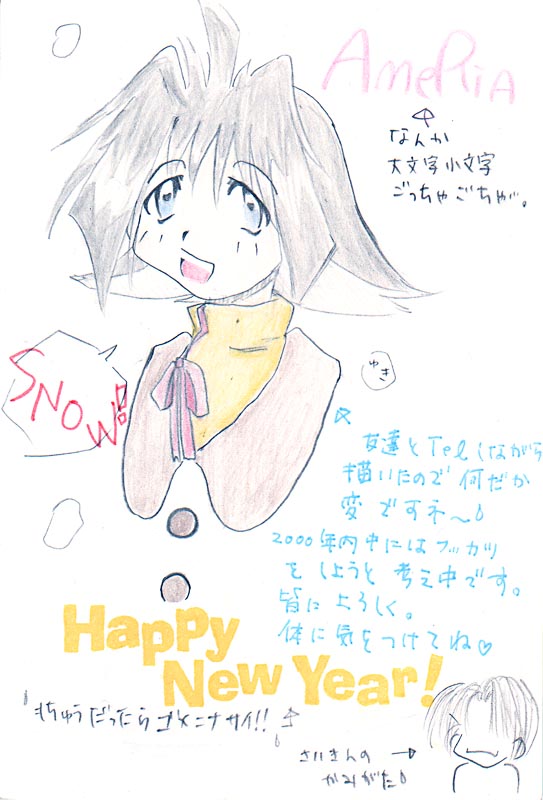 AmeRiA
なんか
大文字小文字
ごっちゃごちゃ。
SNOW!!
ゆき
友達とTelしながら
描いたので何だか
変ですネ〜
2000年内中にはフッカツ
をしようと考え中です。
皆によろしく。
体に気をつけてね♡
Happy
New Year!
もちゅうだったらゴメンナサイ!!
さいきんの
かみがた